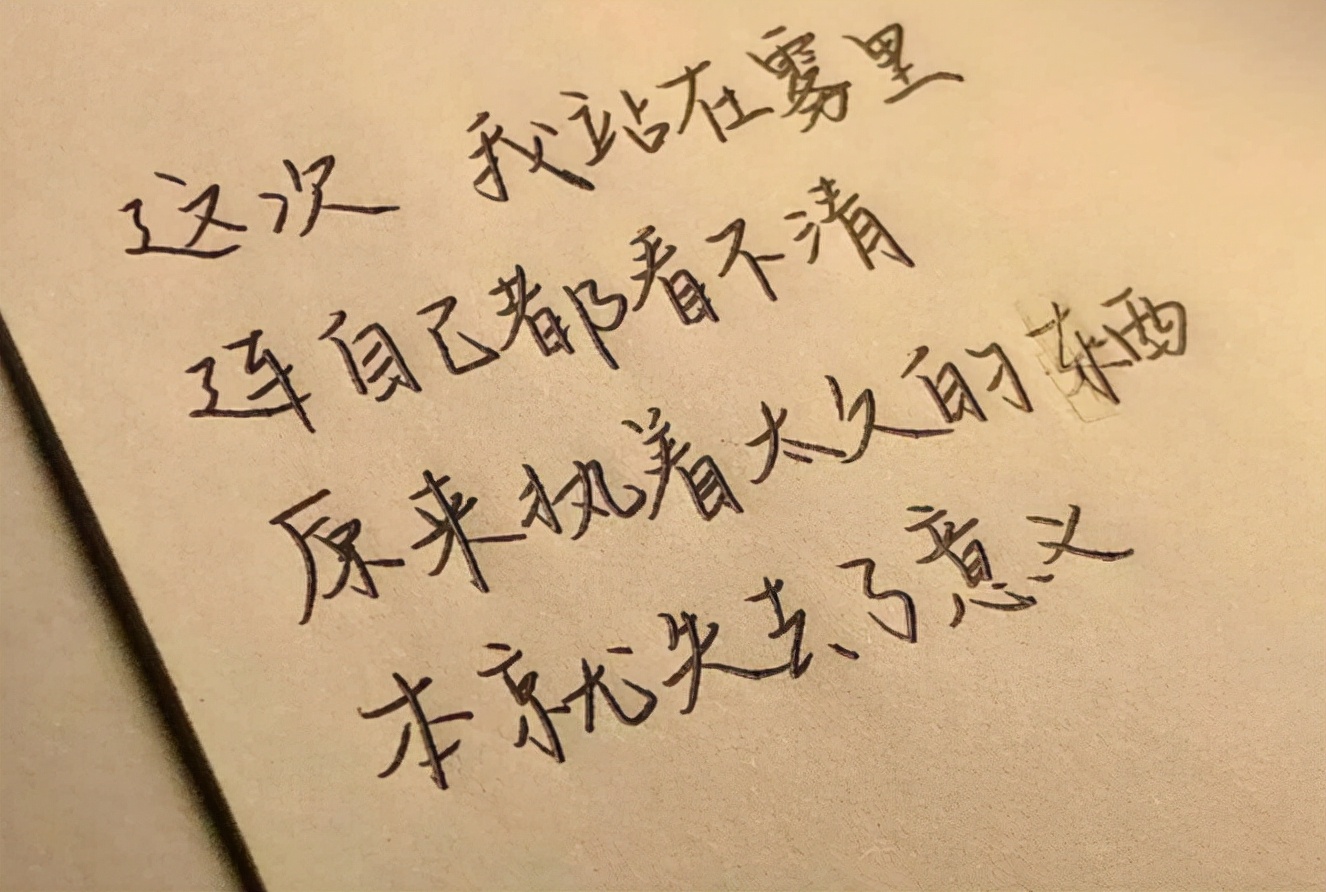 这次 我站在雾里
连自己都看不清
原来执着太久的东西
本就失去了意义